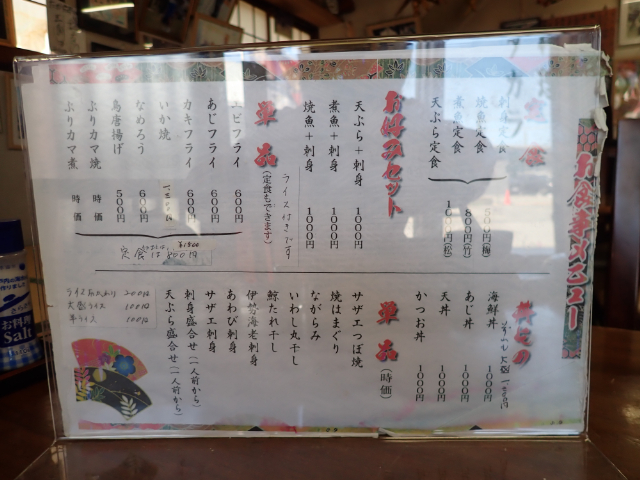 お食事メニュー
定食
刺身定食
焼魚定食
煮魚定食
天ぷら定食
800円(竹)
お好みセット
天ぷら+刺身 1000円
煮魚+刺身 1000円
焼魚+刺身 1000円
ライス付きです
単品
(定食もできます)
エビフライ 600円
あじフライ 600円
カキフライ 600円
いか焼
なめろう 600円
鳥唐揚げ 500円
ぶりカマ焼 時価
ぶりカマ煮 時価
定食は800円
丼もの
海鮮丼 1000円
あじ丼 1000円
天丼 1000円
かつお丼 1000円
単品
(時価)
サザエつぼ焼
焼はまぐり
ながらみ
いわし丸干し
鯨たれ干し
伊勢海老刺身
あわび刺身
サザエ刺身
刺身盛合せ(一人前から)
天ぷら盛合せ(一人前から)
ライスおかわり 200円
大盛ライス 100円
半ライス 100円
お料理
Salt